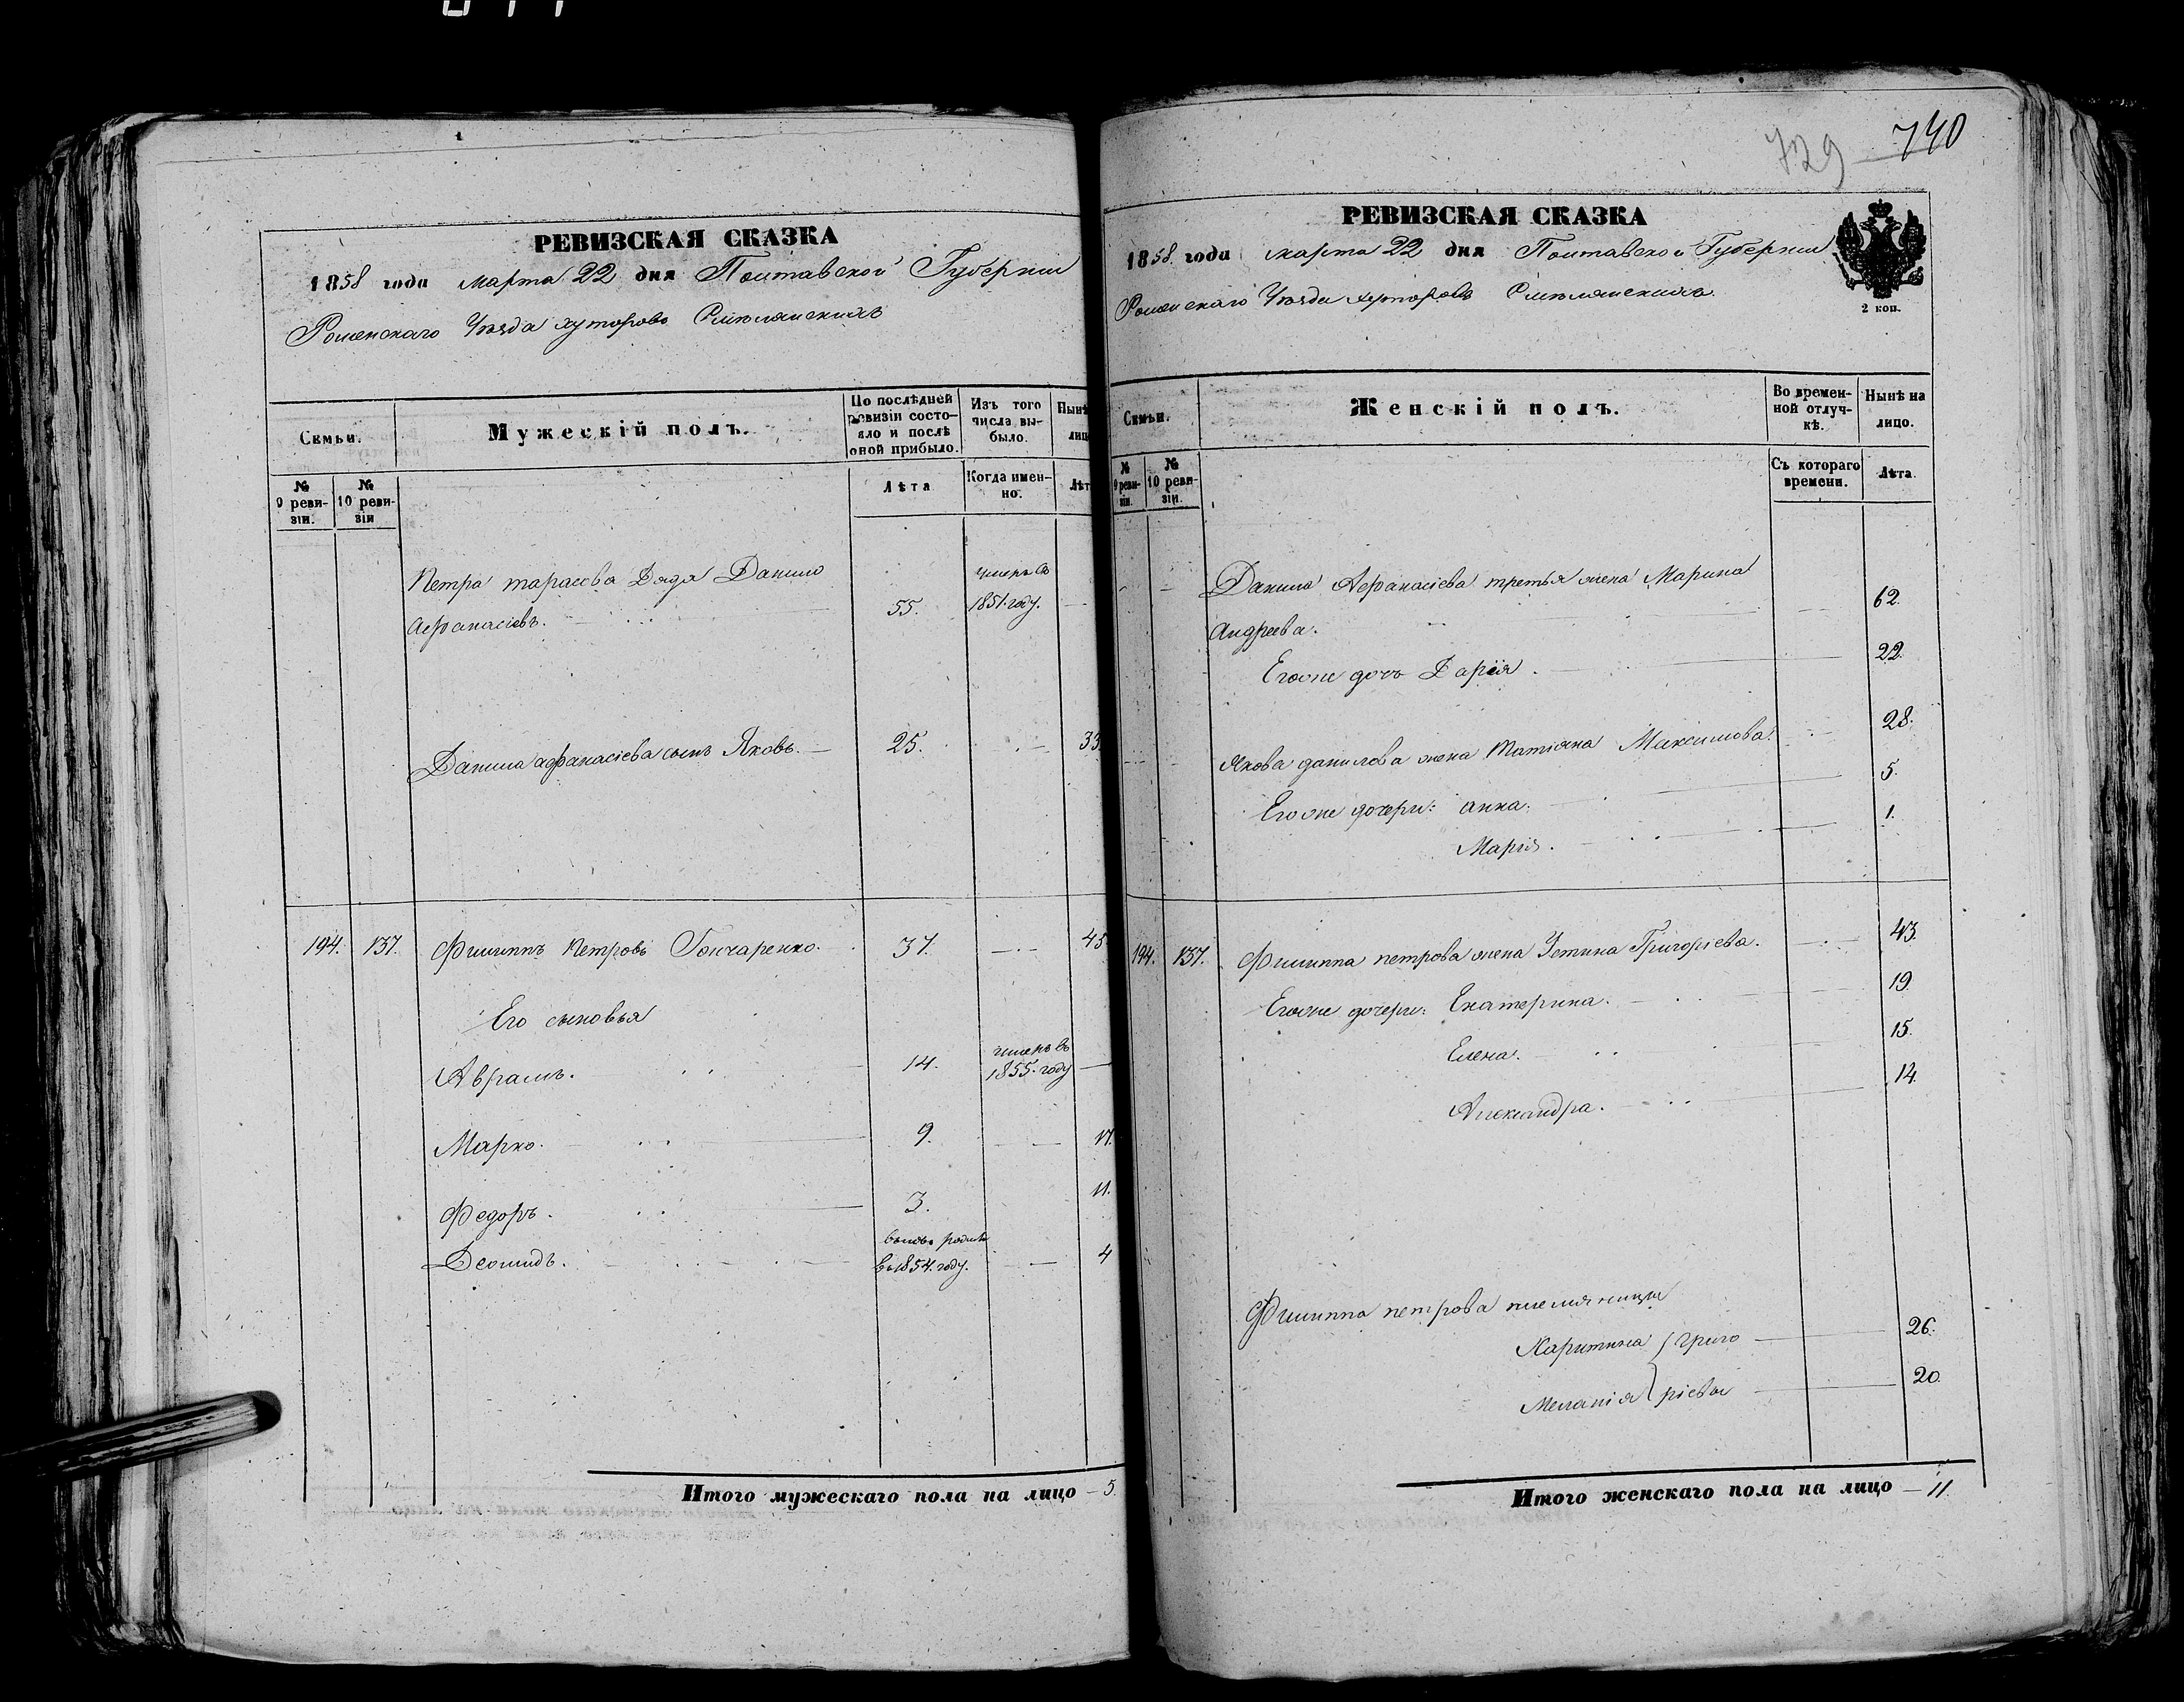 729 740
РЕВИЗСКАЯ СКАЗКА
1858 года марта 22 дня Полтавской Губернии
Роменскаго Уѣзда хуторовъ Смѣлянскихъ
Семьи.
Мужескій полъ.
По послѣдней ревизіи состояло и послѣ оной прибыло.
Изъ того числа выбыло.
Нынѣ
лиц
№ 9 ревизіи.
№ 10 ревизіи
Лѣта
Когда именно.
Лѣт
Петра тарасова Дядя Данило
Афанасіевъ. 55. умеръ въ 1851. году.
Данила афанасіева сынъ Яковъ. 25. 33
194. 137. Филиппъ Петровъ Гончаренко. 37. 45
Его сыновья
Аврамъ. 14. умеръ въ 1855. году
Марко. 9. 17.
Федоръ. 3. 11.
Леонидъ. вновь родил въ 1854. году. 4
Итого мужескаго пола на лицо – 5.
РЕВИЗСКАЯ СКАЗКА
1858 года марта 22 дня Полтавской Губернии
Роменскаго Уѣзда хуторовъ Смѣлянскихъ.
2 коп.
Семьи.
Женскій полъ.
Во временной отлучкѣ.
Нынѣ на лицо.
№ 9 ревизіи.
№ 10 ревизіи.
Съ котораго времени.
Лѣта.
Данила Афанасіева третья жена Марина
Андреева. 62.
Егоже дочь Дарія. 22.
Якова данилова жена Татіяна Максимова. 28.
Егоже дочери: анна. 5.
Марія. 1.
194. 137. Филиппа петрова жена Устина Григоріева. 43.
Егоже дочери: Екатерина. 19.
Елена. 15.
Александра. 14.
Филиппа петрова племянницы
Харитина григо 26.
Меланія ріевы 20.
Итого женскаго пола на лицо – 11.